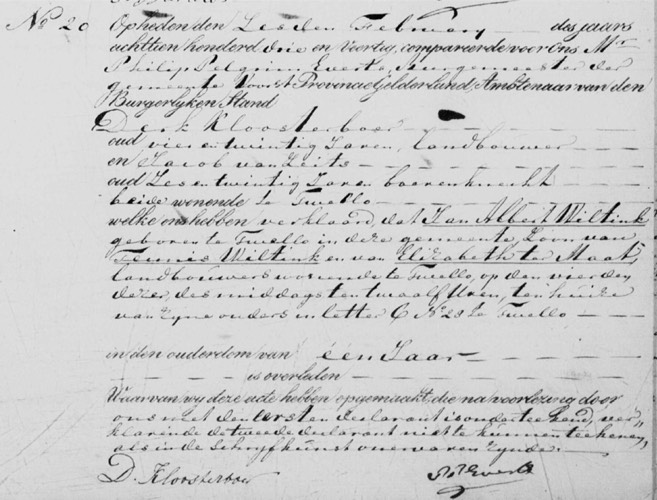 No 20 Op heden den Zesden February des jaars
achttien honderd drie en veertig, compareerde voor ons Mr
Philip Pelgrim Everts, Burgemeester der
gemeente Voorst Provincie Gelderland, Ambtenaar van den
Burgerlyken Stand
Derk Kloosterboer
oud vier en twintig Jaren, landbouwer
en Jacob van
oud Zes en twintig Jaren boerenknecht
beide wonende te Twello
welke ons hebben verklaard, dat Jan Albert Wiltink
geboren te Twello in deze gemeente, Zoon van
Teunis Wiltink en van Elizabeth ter Maat,
landbouwers wonende te Twello, op den vierden
dezer, des middags ten twaalf Uren, ten huize
van Zyne ouders in letter No 29 te Twello
in den ouderdom van één Jaar
is overleden
Waarvan wy deze acte hebben opgemaakt, die na voorlezing door
ons met den eersten declarant is onderteekend, ver„
klarende de tweede declarant niet te kunnen teekenen,
als in de Schryfkunst onervaren Zynde.
D. Kloosterboer Everts